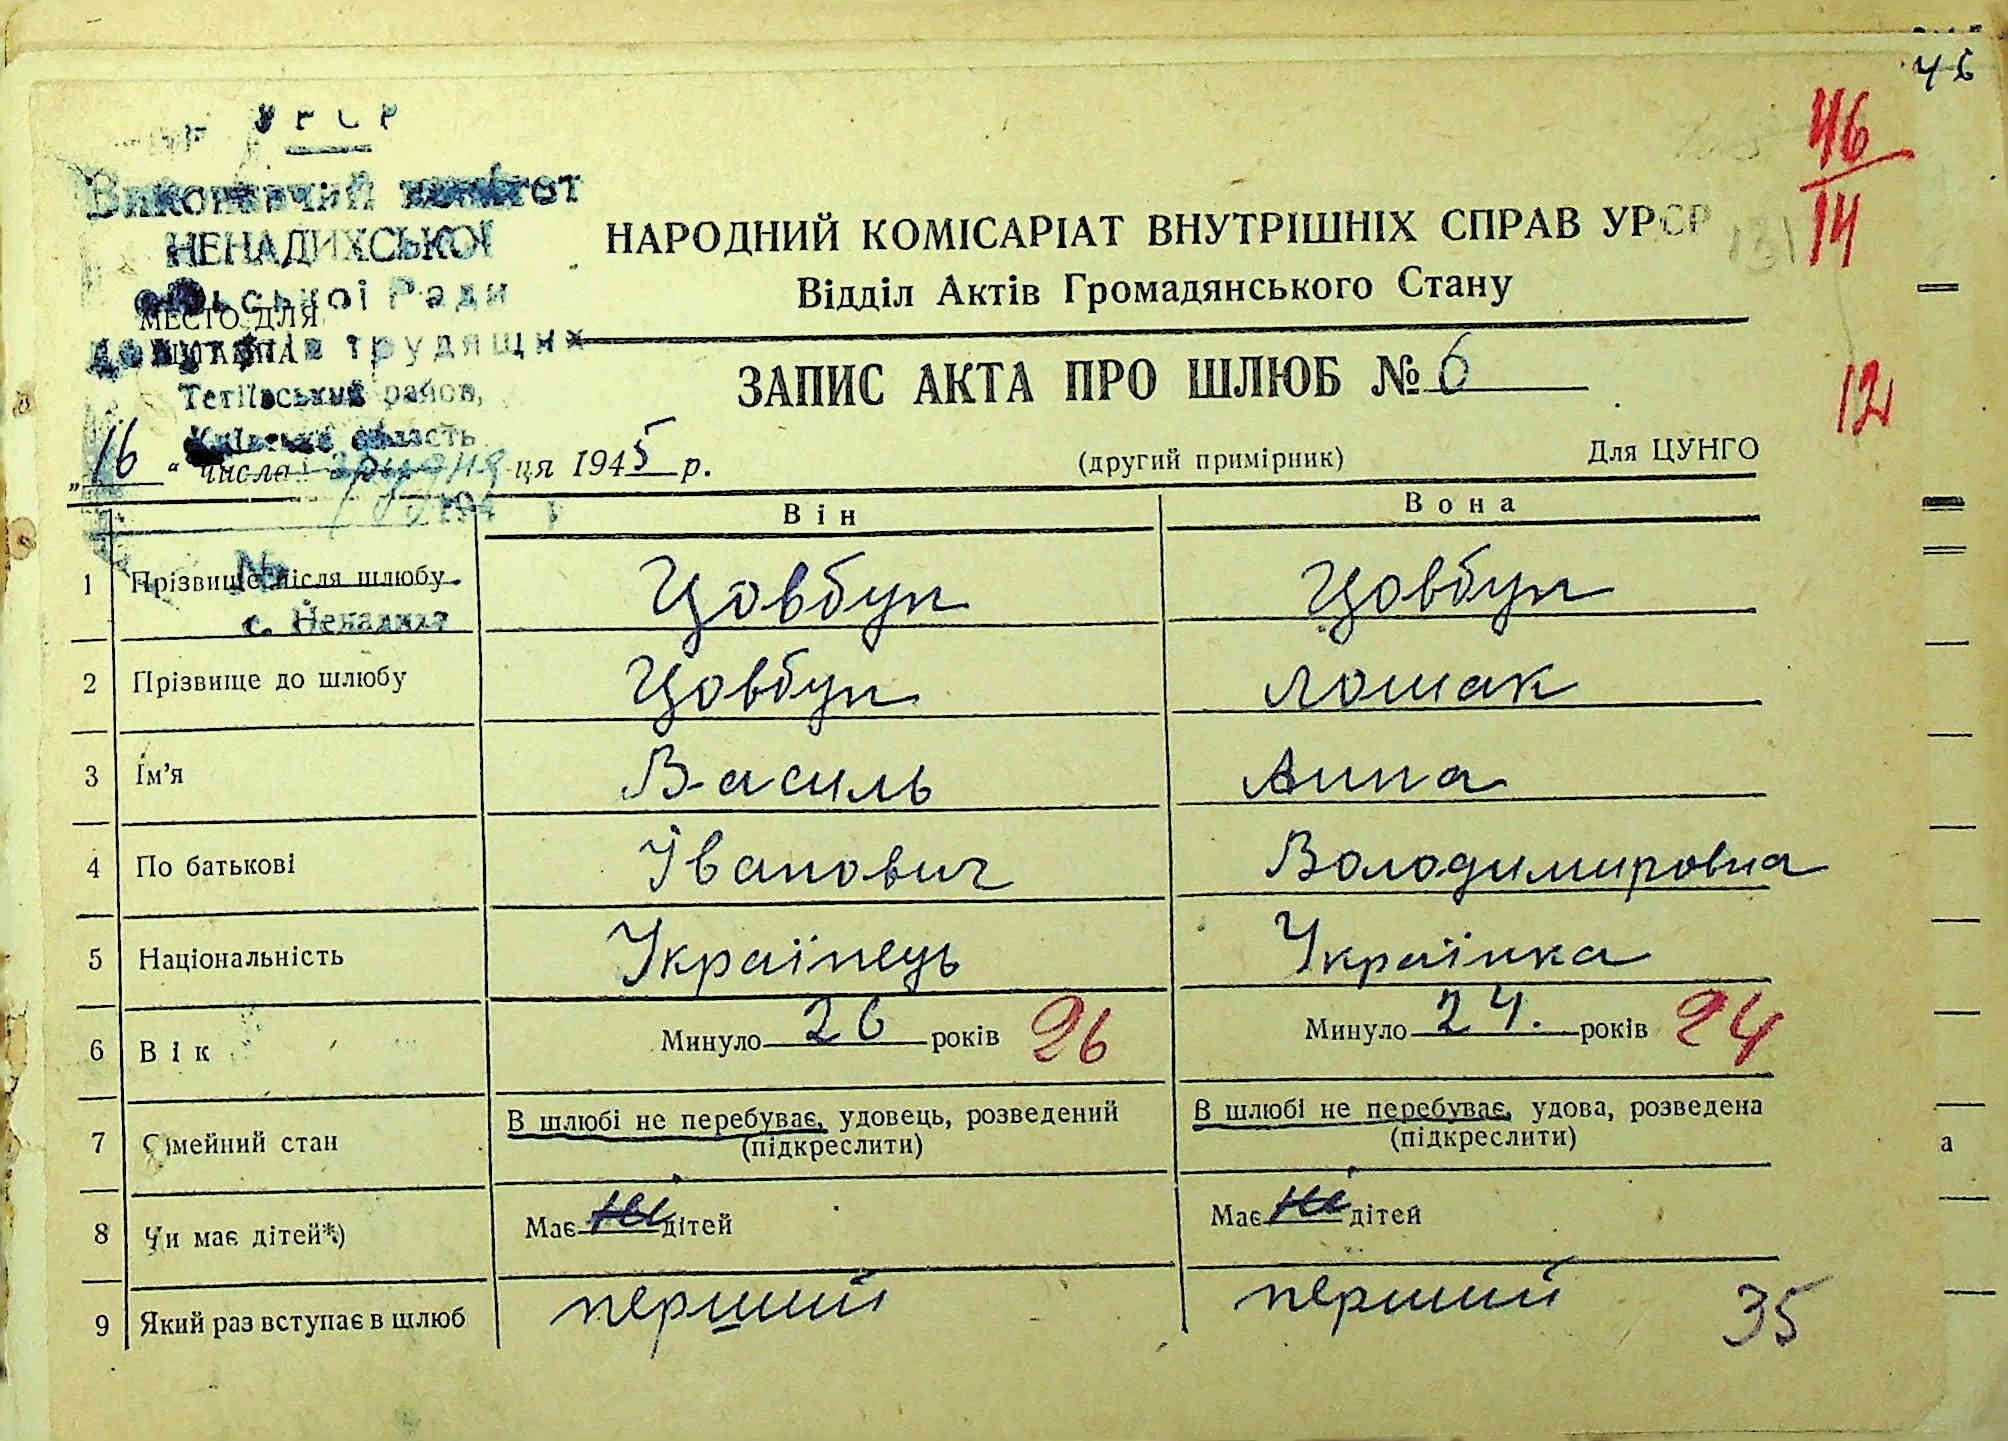 46
УРСР
46
14
Виконавчий комітет
НЕНАДИХСЬКОЇ
сільської Ради
МЕСТО ДЛЯ
ШТАМПА
депутатів трудящих
Тетіївський район,
Київська область
НАРОДНИЙ КОМІСАРІАТ ВНУТРІШНІХ СПРАВ УРСР
131
Відділ Актів Громадянського Стану
ЗАПИС АКТА ПРО ШЛЮБ № 6
12
„16“ числа грудня ця 1945 р.
(другий примірник)
Для ЦУНГО
194 р
№
с. Ненадиха
Він Вона
1 Прізвище після шлюбу Цовбун Цовбун
2 Прізвище до шлюбу Цовбун Лошак
3 Ім’я Василь Анна
4 По батькові Іванович Володимировна
5 Національність Українець Українка
6 Вік Минуло 26 років 26 Минуло 24. років 24
7 Сімейний стан В шлюбі не перебуває, удовець, розведений В шлюбі не перебуває, удова, розведена
(підкреслити) (підкреслити)
а
8 Чи має дітей*) Має ні дітей Має ні дітей
9 Який раз вступає в шлюб перший перший
35